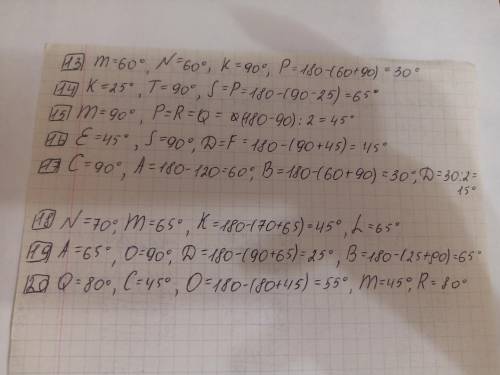 13 M=60°, N=60°, K=90°, P=180-(60+90)=30°
14 K=25°, T=90°, S=P=180-(90-25)=65°
15 M=90°, P=R=Q=(180-90):2=45°
16 E=45°, S=90°, D=F=180-(90+45)=45°
17 C=90°, A=180-120=60°, B=180-(60+90)=30°, D=30:2=
15°
18 N=70°, M=65°, K=180-(70+65)=45°, L=65°
19 A=65°, O=90°, D=180-(90+65)=25°, B=180-(25+90)=65°
20 Q=80°, C=45°, O=180-(80+45)=55°, M=45°, R=80°